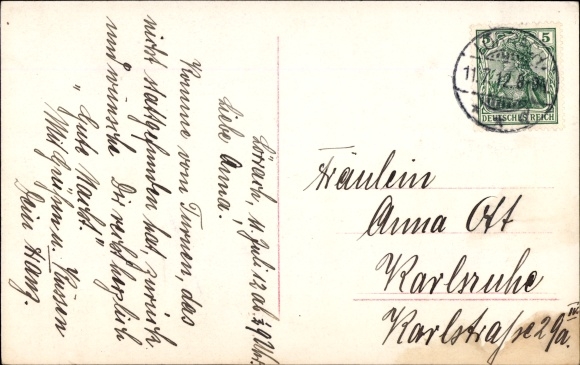 Lörrach, 11. Juli 12 ab. ½9 Uhr.
Liebe Anna!
Komme vom Turnen, das
nicht stattgefunden hat, zurück
und wünsche Dir recht herzlich
"Gute Nacht."
Mit Grüßen u. Küssen
Dein Hans.
5
DEUTSCHES REICH
11.7.12.8-9N
Fräulein
Anna Ott
Karlsruhe
Karlstraße 29a. III